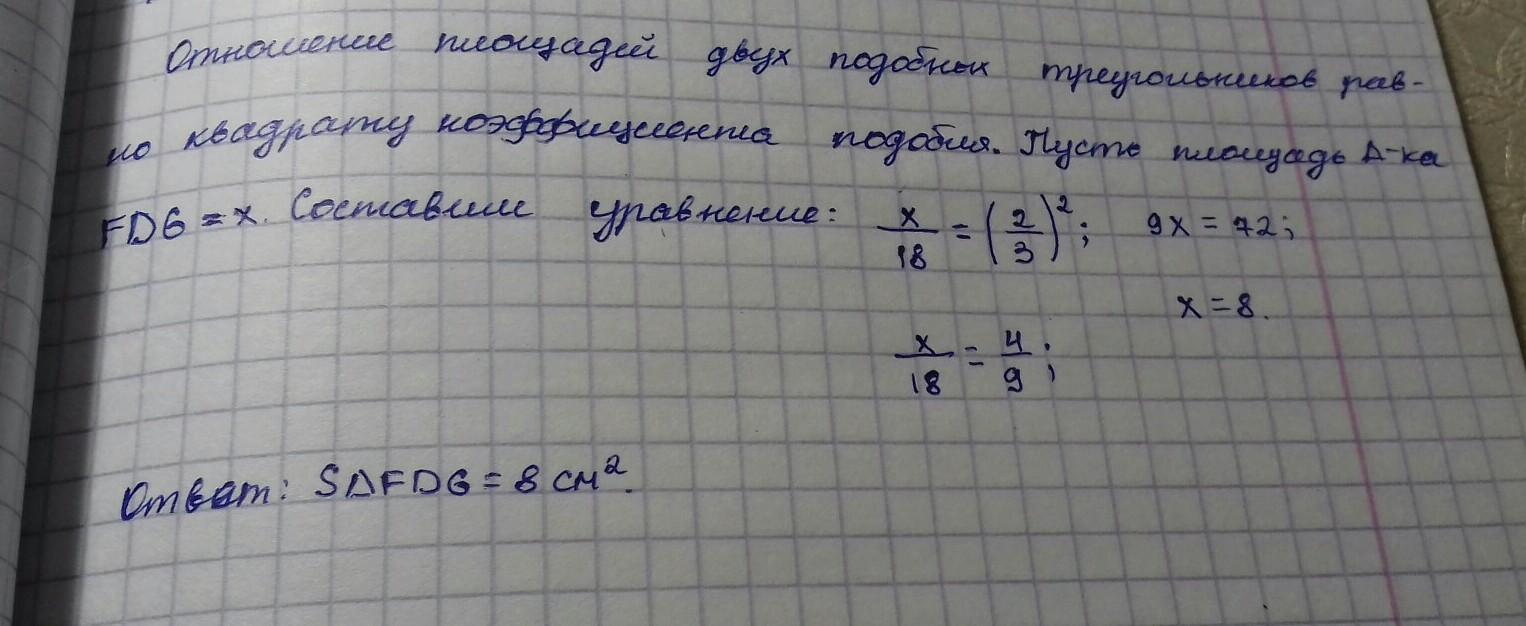 Отношение площадей двух подобных треугольников рав-
но квадрату коэффициента подобия. Пусть площадь Δ-ка
FDG = x. Составим уравнение: x/18 = (2/3)²; 9x = 72;
x = 8.
x/18 = 4/9;
Ответ: SΔFDG = 8 см².